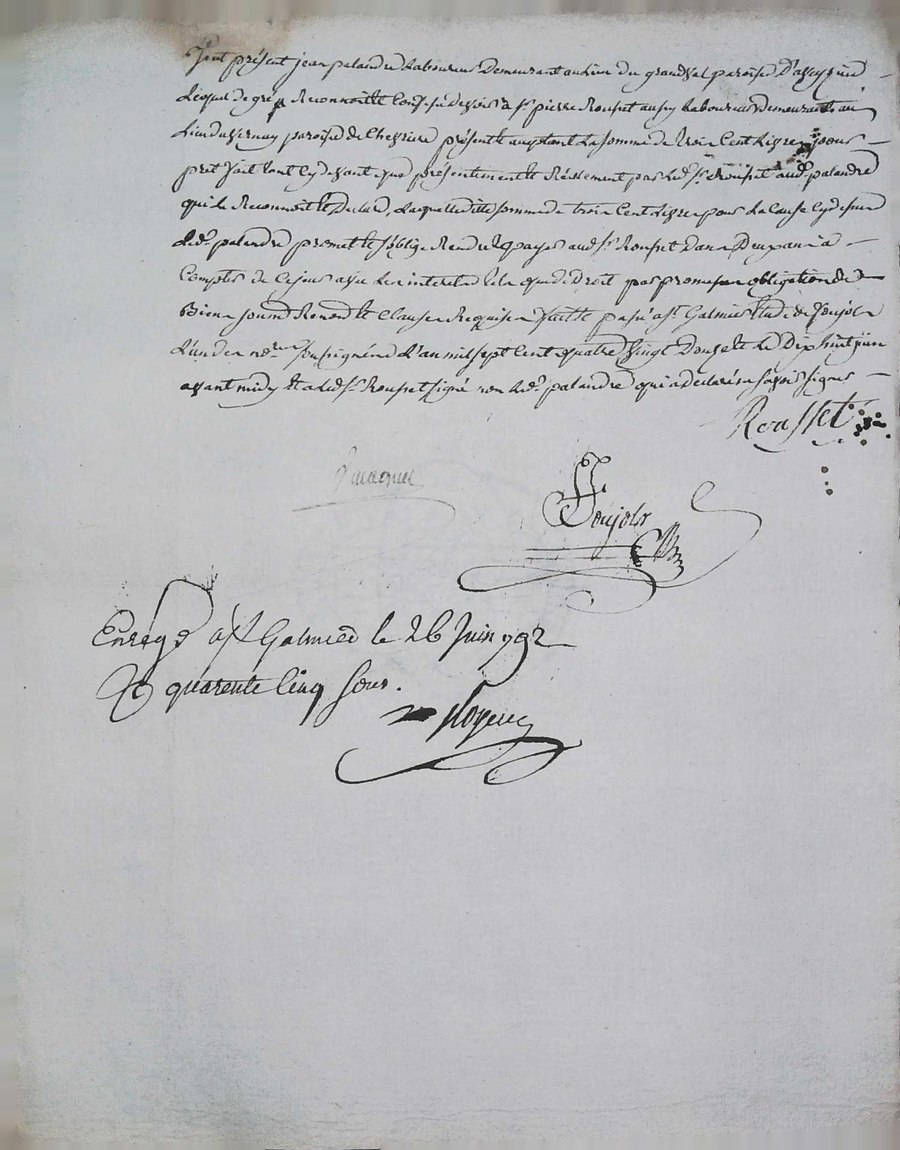 Fut présent jean palandre Laboureur Demeurant au lieu du grandval paroisse D'aveyzieu
Lequel de gré Reconnoit & Confesse devoir à Sr pierre Rousset aussy Laboureur demeurant au
Lieu du vernay paroisse de Chevrieu présent & acceptant La somme de trois Cent Livres pour
pret fait tant cy devant que présentement & Réellement par led. Sr Rousset aud. palandre
qui le Reconnoit & Declare, Laquelle ditte somme de trois Cent Livres pour La Cause cy dessus
Led. palandre promet & s'oblige Rendre & payer aud. Sr Rousset Dans Deux ans à
Compter de Ce jour avec Les interets tels que de Droit par promesse obligation de
Biens soumis Renond & Clauses Requises fait & passé à St Galmier Etude de foujols
L'un des nores soussignés L'an mil sept Cent quatre vingt Douze & Le Dix huit juin
avant midy & a led. Sr Rousset signé non Led. palandre qui a declaré ne savoir signer
Rousset
foujols
Enregé à St Galmier le 26 Juin 792
R quarente Cinq sous.